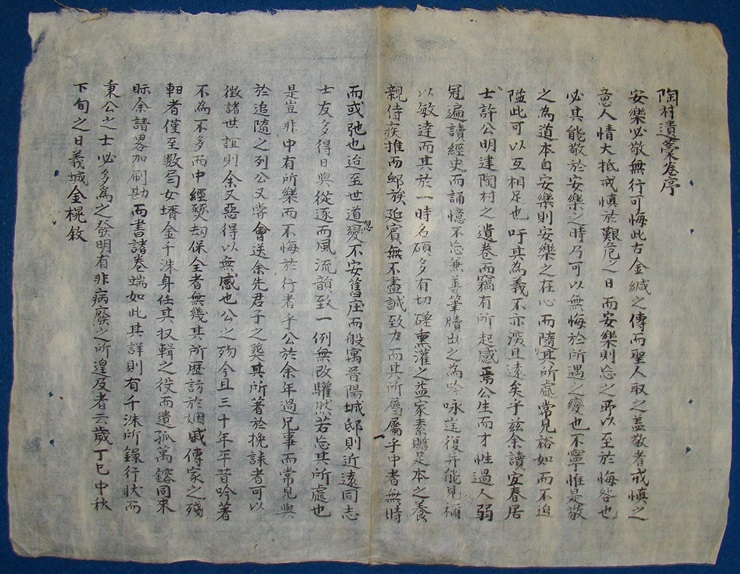 陶村遺藁卷序
安樂必敬無行可悔此古金緘之傳而聖人取之盖敬者戒慎之
意人情大抵戒慎於艱危之日而安樂則忘之所以至於悔咎也
必其能敬於安樂之時乃可以無悔於所遇之變也不寧惟是敬
之為道本自安樂則安樂之在心而隨其所處常見裕如而不迫
隘此可以互相足也吁其為義不亦淡且遠矣乎玆余讀宜春居
士許公明建陶村之遺卷而竊有所起感焉公生而才性過人弱
冠遍讀經史而誦憶不忘兼善筆牘出之為吟咏
以敏達而其於一時名碩多有切磋熏灌之益家素贍足本之養
親侍疾推而鄕族延賓無不盡誠致力而其所屬乎中者無時
而或弛也迨至世道忽變不安舊庄而般寓晉陽城邸則近遠同志
士友多得日與從逐而風流韻致一例無改驩然若忘其所處也
是豈非中有所樂而不悔於行者乎公於余年過兄事而常見與
於追隨之列公又嘗會送余先君子之葬其所著於挽誄者可以
徵諸世誼則余又惡得以無感也公之殉今且三十年平昔吟著
不為不多而中經燹刧保全者無幾其所歷訪於姻戚傳家之殘
軸者僅至數局女壻金千洙身任其収輯之役而遺孤萬鎔同來
眎余請畧加刪勘而書諸卷端如此其詳則有千洙所錄行狀而
秉公之士必多為之發明有非病廢之所遑及者云歲丁巳中秋
下旬之日義城金榥敘